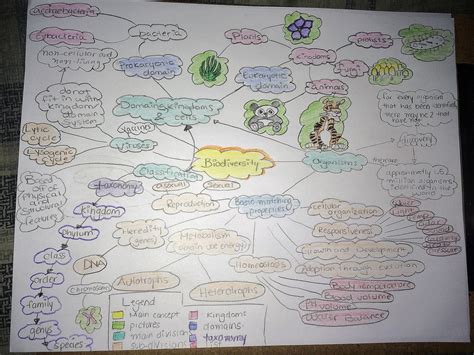 Archaebacteria
Eubacteria
bacteria
Prokaryotic
domain
Plants
Kingdoms
protists
fungi
Eukaryotic
domain
animals
non-cellular and
non-living
do not
fit in with
kingdom
domain
system
Domains, kingdoms
& cells
Viruses
Lytic
cycle
Lysogenic
cycle
Classification
Biodiversity
Organisms
for every organism
that has been identified
there may be 2 that
have not
Based
off of
Physical
and
Structural
features
taxonomy
kingdom
phylum
class
order
family
genus
species
asexual
Sexual
Reproduction
Heredity
genes
DNA
Chromosomes
Metabolism
obtain use energy
Autotrophs
Heterotrophs
Homeostasis
properties
cellular organization
Responsiveness
Growth and Development
Adaption through Evolution
Body temperature
Blood volume
pH volume
Water Balance
Legend
main concept
pictures
main division
sub-divisions
kingdoms
domains
taxonomy